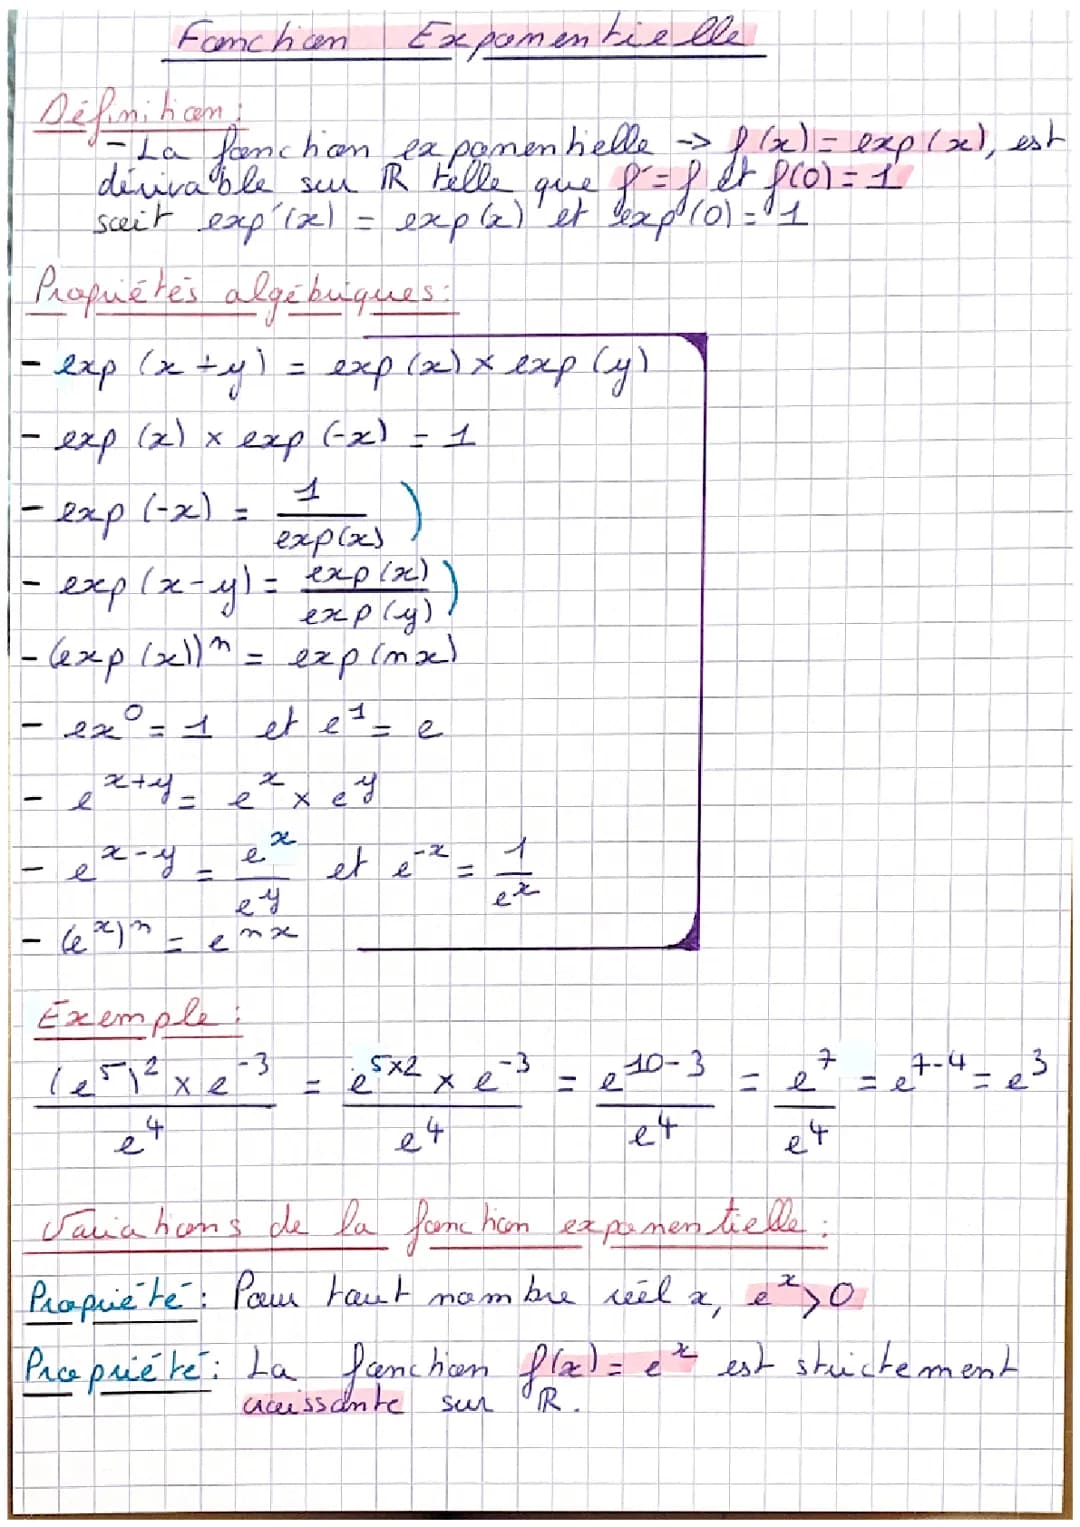 Fonction Exponentielle
Définition :
- La fonction exponentielle -> f(x) = exp(x), est
dérivable sur ℝ telle que f' = f et f(0) = 1
soit exp'(x) = exp(x) et exp(0) = 1
Propriétés algébriques :
- exp (x+y) = exp(x) × exp(y)
- exp (x) × exp (-x) = 1
- exp (-x) = 1/exp(x) )
- exp (x-y) = exp(x)/exp(y) )
- (exp (x))^n = exp(nx)
- ex^0 = 1 et e^1 = e
- e^(x+y) = e^x × e^y
- e^(x-y) = e^x/e^y et e^(-x) = 1/e^x
- (e^x)^n = e^(nx)
Exemple :
((e^5)^2 × e^(-3))/e^4 = (e^(5×2) × e^(-3))/e^4 = e^(10-3)/e^4 = e^7/e^4 = e^(7-4) = e^3
Variations de la fonction exponentielle :
Propriété : Pour tout nombre réel x, e^x > 0
Propriété : La fonction f(x) = e^x est strictement
croissante sur ℝ.